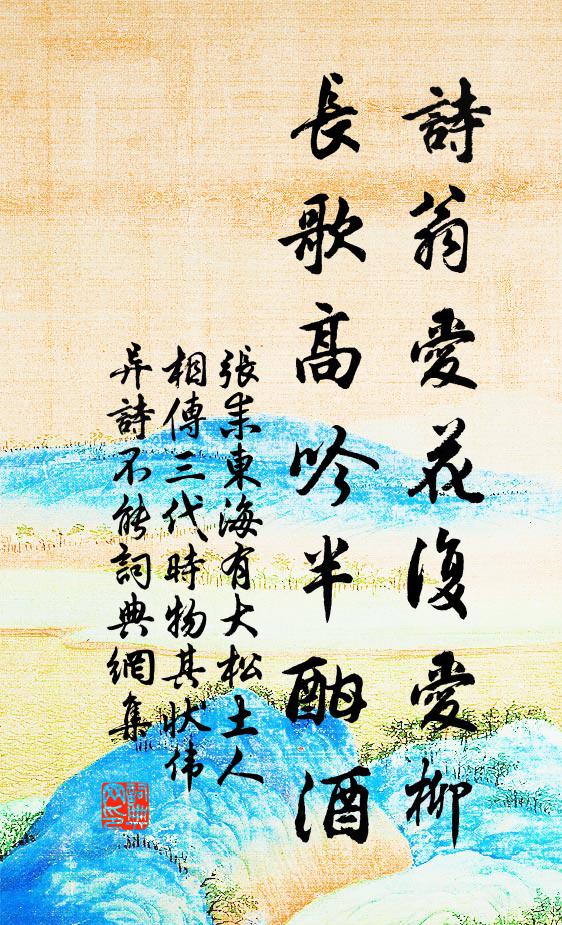 詩翁愛花復愛柳
長歌高吟半酣酒
張耒東海有大松土人
相傳三代時物其狀偉
异詩不能詞典網集